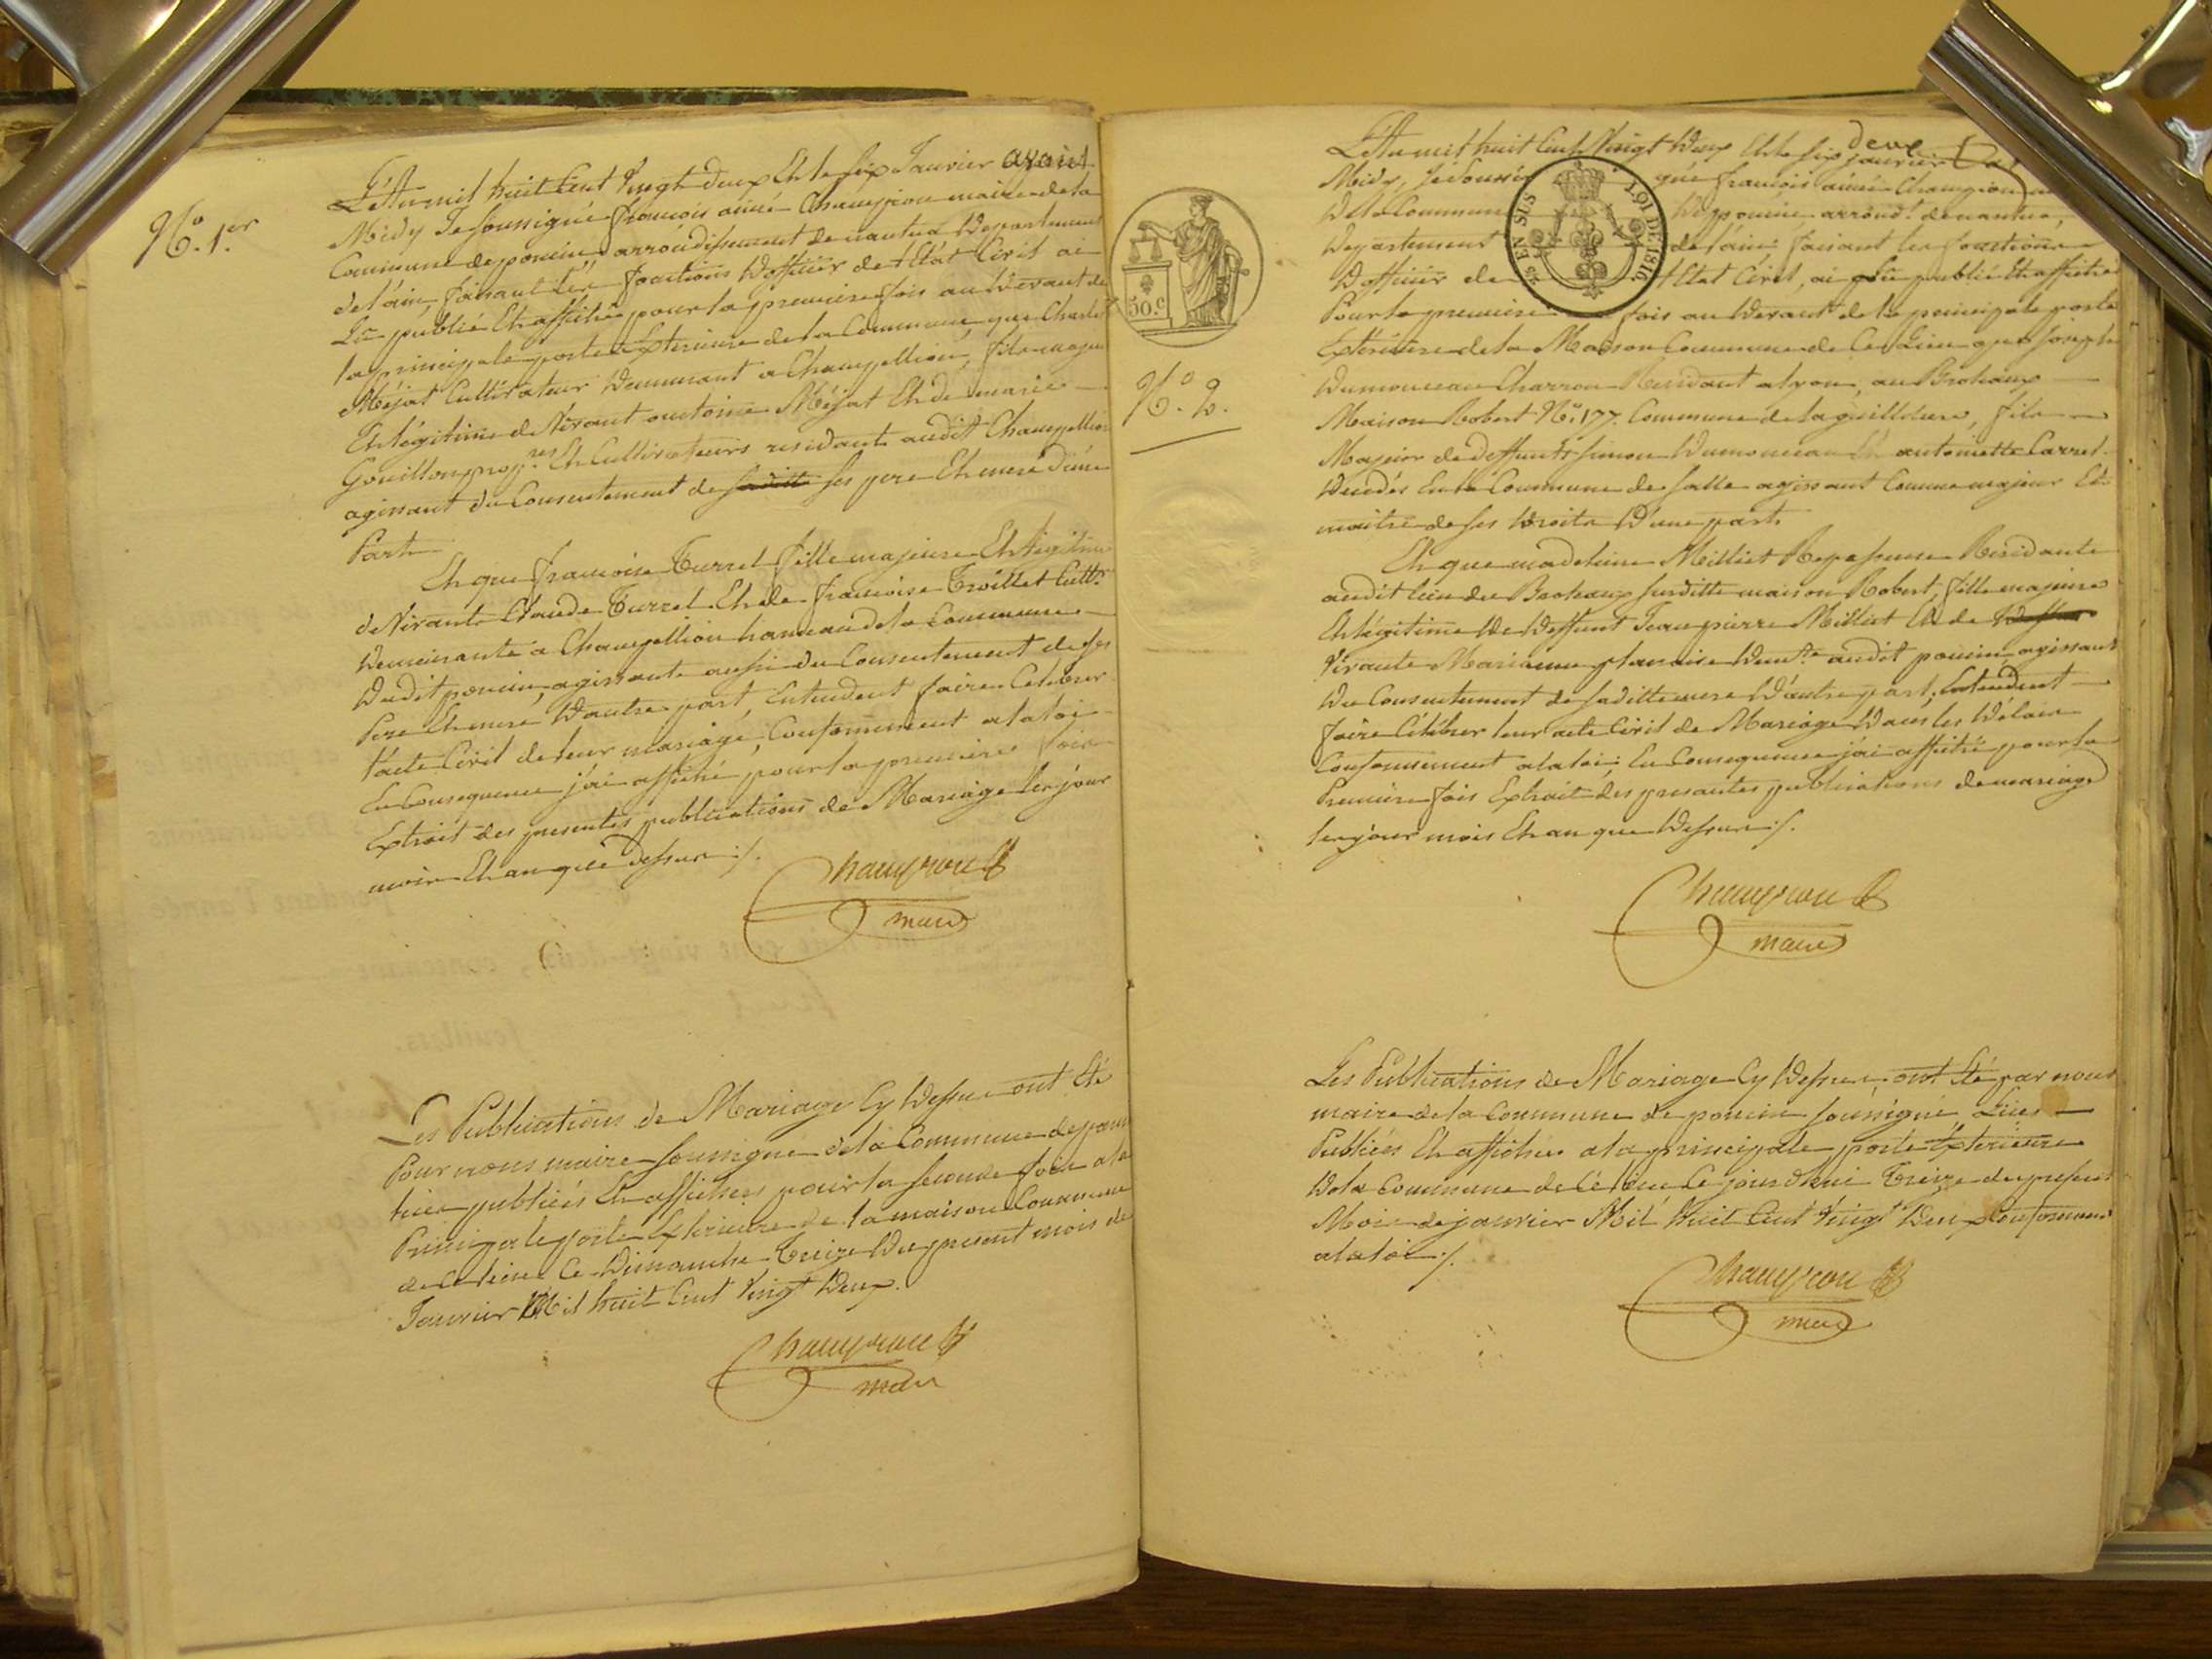 N.º 1.er
L'An mil huit Cent Vingt deux Et le six Janvier avant
Midy Je soussigné françois aimé Champion maire de la
Commune de poncin, arrondissement de nantua Departement
de l'ain, faisant les fonctions D'officier de l'État Civil ai
Lu publié Et affiché pour la premiere fois au Devant de
la principale porte Exterieure de la Commune, que Charles
Méjat Cultivateur Demeurant a Champellion, fils majeur
Et légitime de Vivant antoine Méjat Et de marie
Gouillon prop.res Et Cultivateurs residants audit Champellion
agissant du Consentement de ses pere Et mere D'une
Part
Et que françoise Turrel fille majeure Et légitime
de Vivants Claude Turrel Et de françoise Troillet Cult.rs
Demeurante a Champellion hameau de la Commune
Dudit poncin, agissante aussi du Consentement de ses
Pere Et mere D'autre part, Entendent faire Celebrer
l'acte Civil de leur mariage, Conformement a la loi
En Consequence j'ai affiché pour la premiere fois
Extrait des presentes publications de Mariage les jour
mois Et an que dessus ./.
Champion
maire
Les Publications de Mariage Cy Dessus ont Eté
Pour nous maire soussigné de la Commune de poncin
lues publiées Et affichées pour la seconde fois a la
Principale porte Exterieure de la maison Commune
de Ce lieu Ce Dimanche Treize Du present mois de
Janvier Mil huit Cent Vingt Deux.
Champion
maire
50.c
N.º 2.
L'An mil huit Cent Vingt Deux Et le six janvier
deux
Midy, Je soussigné que françois aimé Champion
De la Commune De poncin arrond.t de nantua,
Departement de l'ain, faisant les fonctions
D'officier de l'Etat Civil, ai Lu publié Et affiché
Pour la premiere fois au Devant de la principale porte
Extérieure de la Maison Commune de Ce Lieu que Joseph
Dumonceau Charron Residant a lyon, au Broteaux
Maison Robert N.º 177. Commune de la guillotiere, fils
Majeur de deffunts simon Dumonceau Et antoinette Carrel
Decedés En la Commune de salle agissant Comme majeur Et
maitre de ses Droits D'une part.
Et que madeleine Milliet Repasseuse Residante
audit lieu des Broteaux susditte maison Robert, fille majeure
Et légitime De Deffunt Jean pierre Milliet Et de
Vivante Marianne planaise Dem.te audit poncin agissant
Du Consentement de saditte mere D'autre part, Entendent
faire Célébrer leur acte Civil de Mariage Dans les Délais
Conformement a la loi; En Consequence j'ai affiché pour la
Premiere fois Extrait des presentes publications de mariage
les jour mois Et an que Dessus ./.
Champion
maire
Les Publications de Mariage Cy Dessus ont Eté par nous
maire de la Commune de poncin soussigné Lües
Publiées Et affichées a la principale porte Exterieure
De la Commune de Ce lieu Ce jour d'hui Treize du present
Mois de janvier Mil huit Cent Vingt Deux Conformement
a la loi ./.
Champion
maire
EN SUS
LOI DE 1816